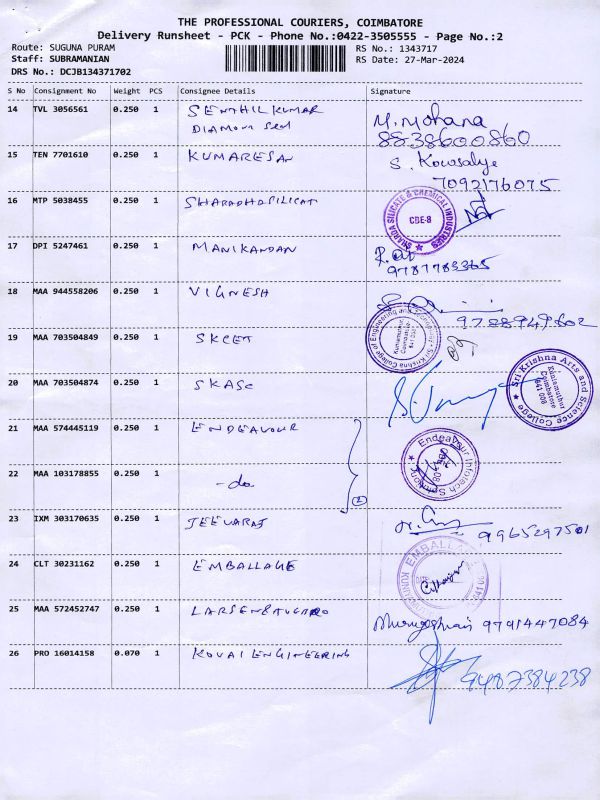 THE PROFESSIONAL COURIERS, COIMBATORE
Delivery Runsheet - PCK - Phone No.:0422-3505555 - Page No.:2
Route: SUGUNA PURAM RS No.: 1343717
Staff: SUBRAMANIAN RS Date: 27-Mar-2024
DRS No.: DCJB134371702
S No Consignment No Weight PCS Consignee Details Signature
14 TVL 3056561 0.250 1 SENTHIL KUMAR M. Mohana
DIAMOND 8838600860
15 TEN 7701610 0.250 1 KUMARESAN S. Kowsalye
7092176075
16 MTP 5038455 0.250 1 SHARADHA SILICAT
SHARDA SILICATE & CHEMICAL INDUSTRIES
CBE-8
17 DPI 5247461 0.250 1 MANIKANDAN
9787783365
18 MAA 944558206 0.250 1 VIGNESH
9788949602
19 MAA 703504849 0.250 1 SKCET
Sri Krishna College of Engineering and Technology
Kuniamuthur
Coimbatore
641 008
20 MAA 703504874 0.250 1 SKASC
Sri Krishna Arts and Science College
Kuniamuthur
Coimbatore
641 008
21 MAA 574445119 0.250 1 ENDEAVOUR
Endeavour Infotech
22 MAA 103178855 0.250 1 -do- (2)
23 IXM 303170635 0.250 1 JEEVARAJ
9965297501
24 CLT 30231162 0.250 1 EMBALLAGE
EMBALLAGE
25 MAA 572452747 0.250 1 LARSEN&TUBRO
9791447084
26 PRO 16014158 0.070 1 KOVAI ENGINEERING
9487384238